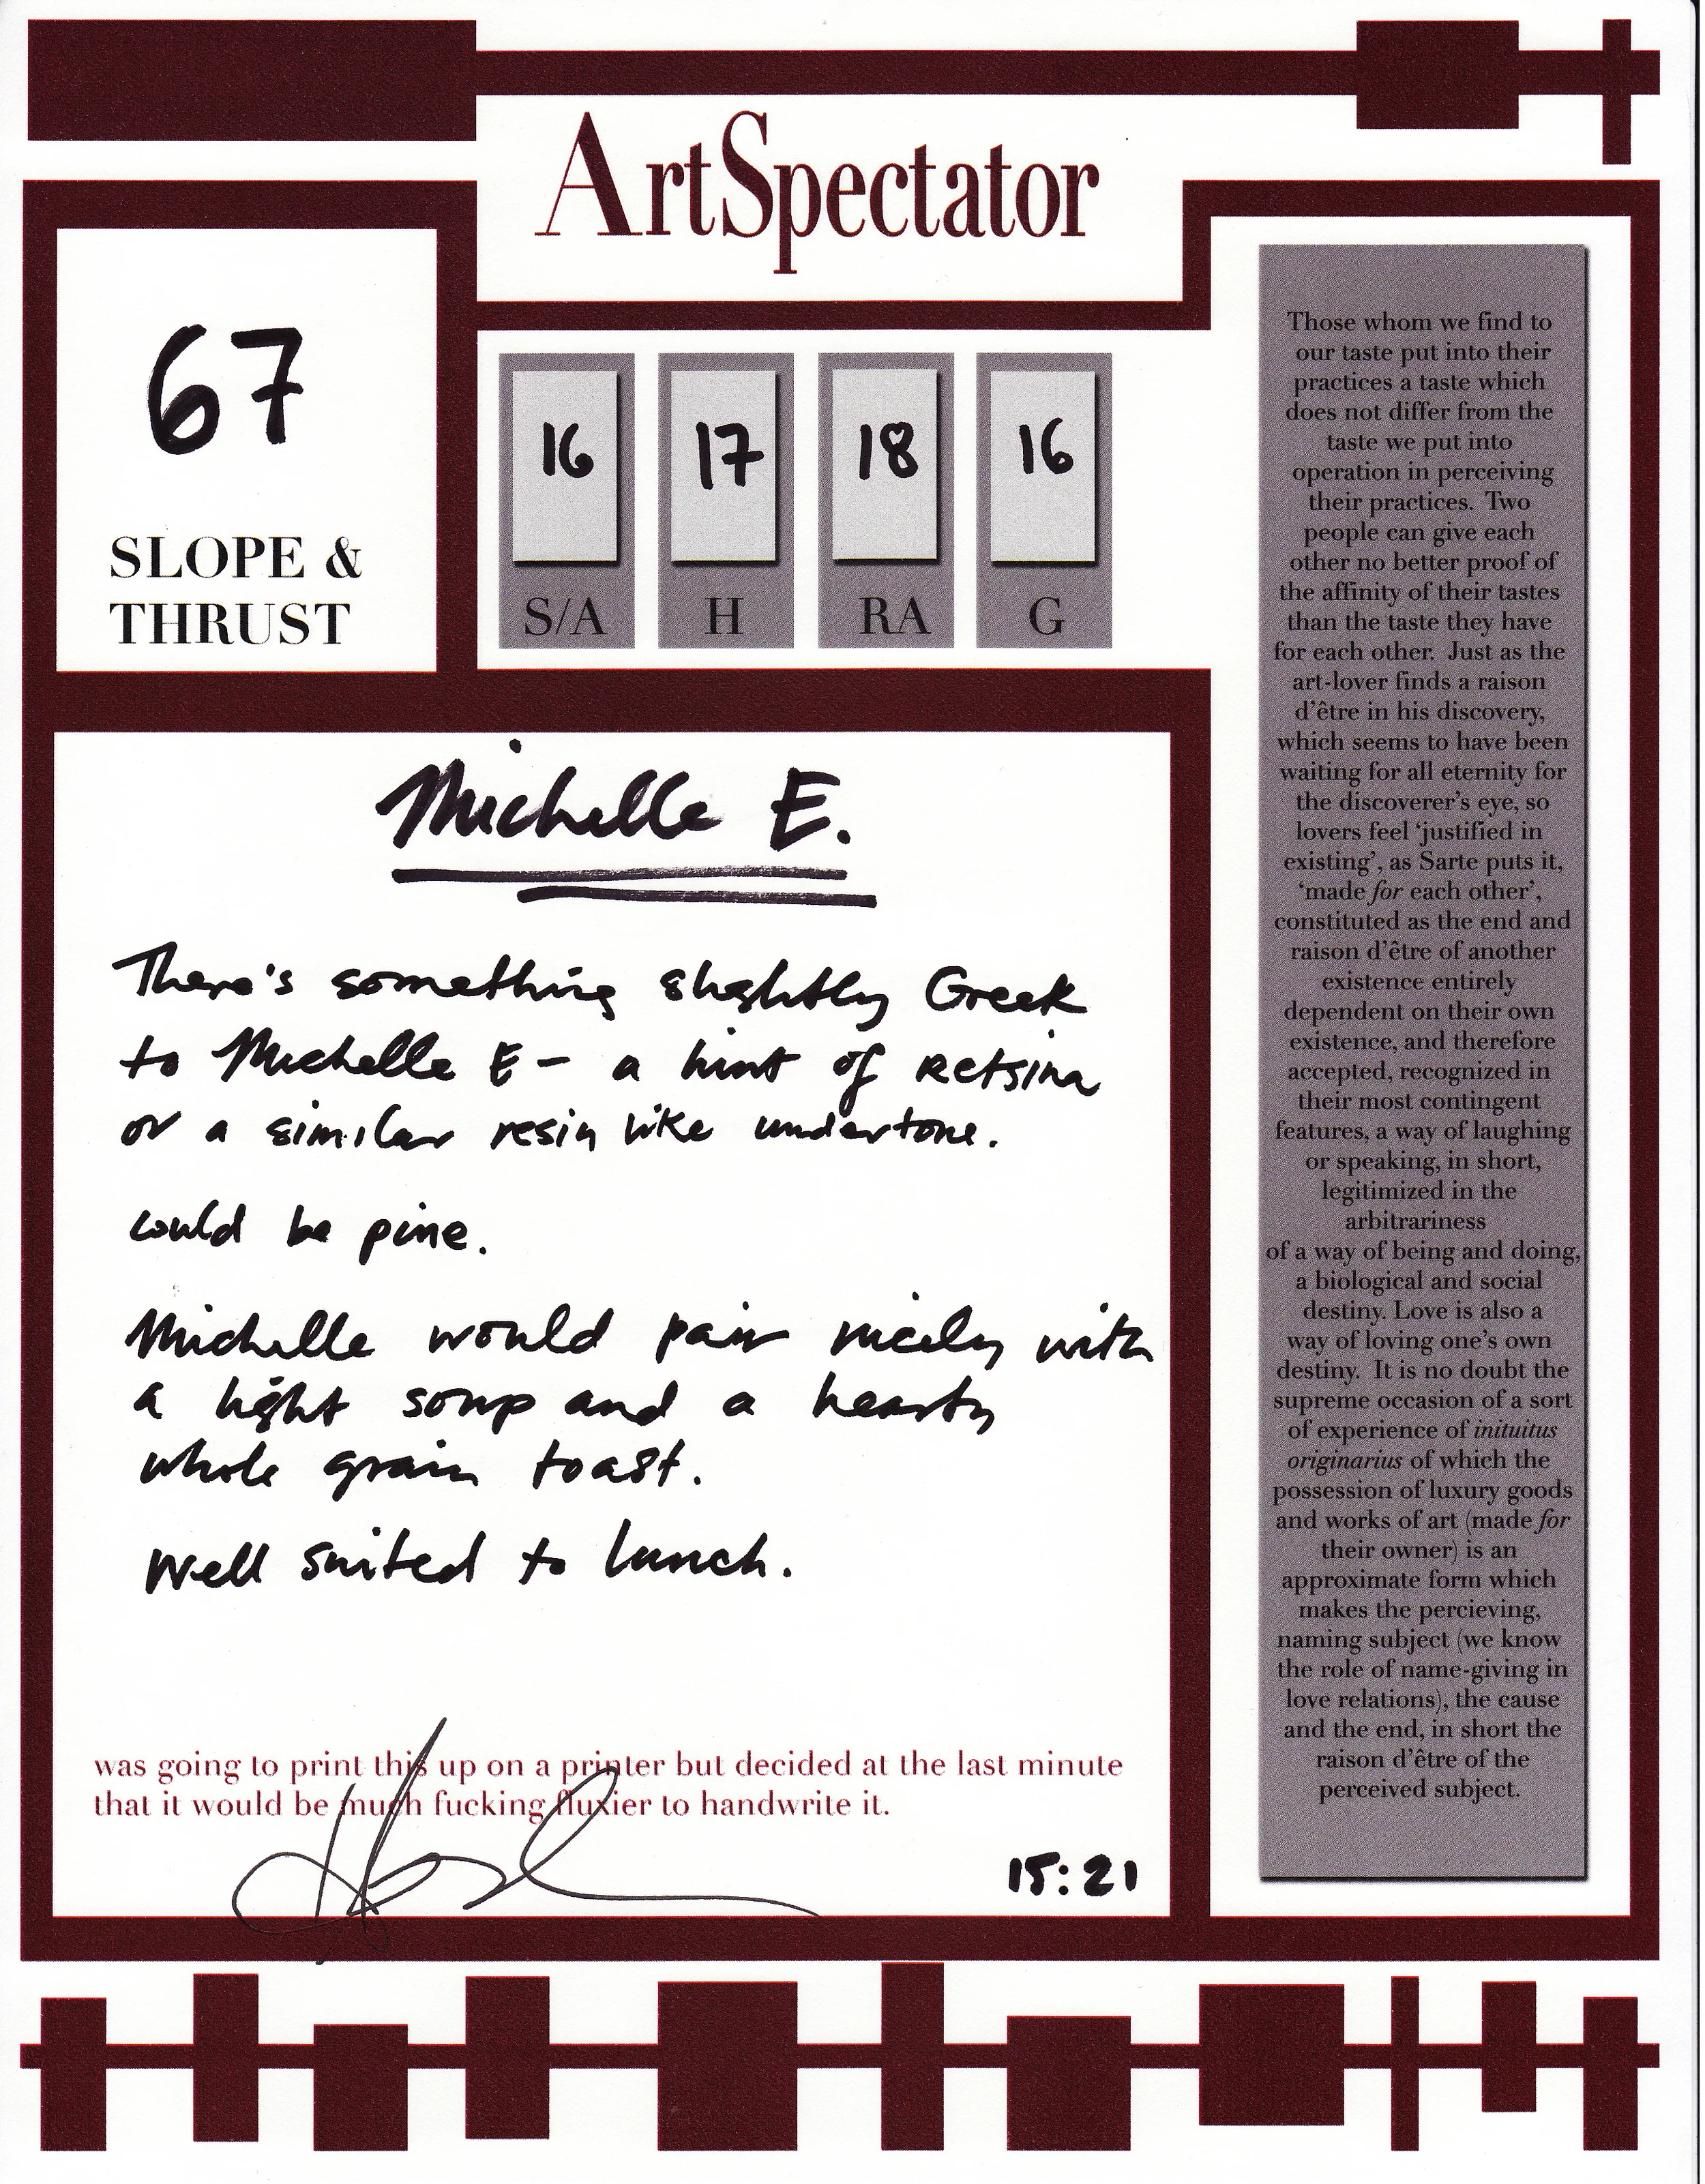 ArtSpectator
67
SLOPE &
THRUST
16 17 18 16
S/A H RA G
Michelle E.
There's something slightly Greek
to Michelle E - a hint of retsina
or a similar resin like undertone.
could be pine.
Michelle would pair nicely with
a light soup and a hearty
whole grain toast.
Well suited to lunch.
was going to print this up on a printer but decided at the last minute
that it would be much fucking fluxier to handwrite it.
15:21
Those whom we find to
our taste put into their
practices a taste which
does not differ from the
taste we put into
operation in perceiving
their practices. Two
people can give each
other no better proof of
the affinity of their tastes
than the taste they have
for each other. Just as the
art-lover finds a raison
d'être in his discovery,
which seems to have been
waiting for all eternity for
the discoverer's eye, so
lovers feel 'justified in
existing', as Sarte puts it,
'made for each other',
constituted as the end and
raison d'être of another
existence entirely
dependent on their own
existence, and therefore
accepted, recognized in
their most contingent
features, a way of laughing
or speaking, in short,
legitimized in the
arbitrariness
of a way of being and doing,
a biological and social
destiny. Love is also a
way of loving one's own
destiny. It is no doubt the
supreme occasion of a sort
of experience of inituitus
originarius of which the
possession of luxury goods
and works of art (made for
their owner) is an
approximate form which
makes the percieving,
naming subject (we know
the role of name-giving in
love relations), the cause
and the end, in short the
raison d'être of the
perceived subject.